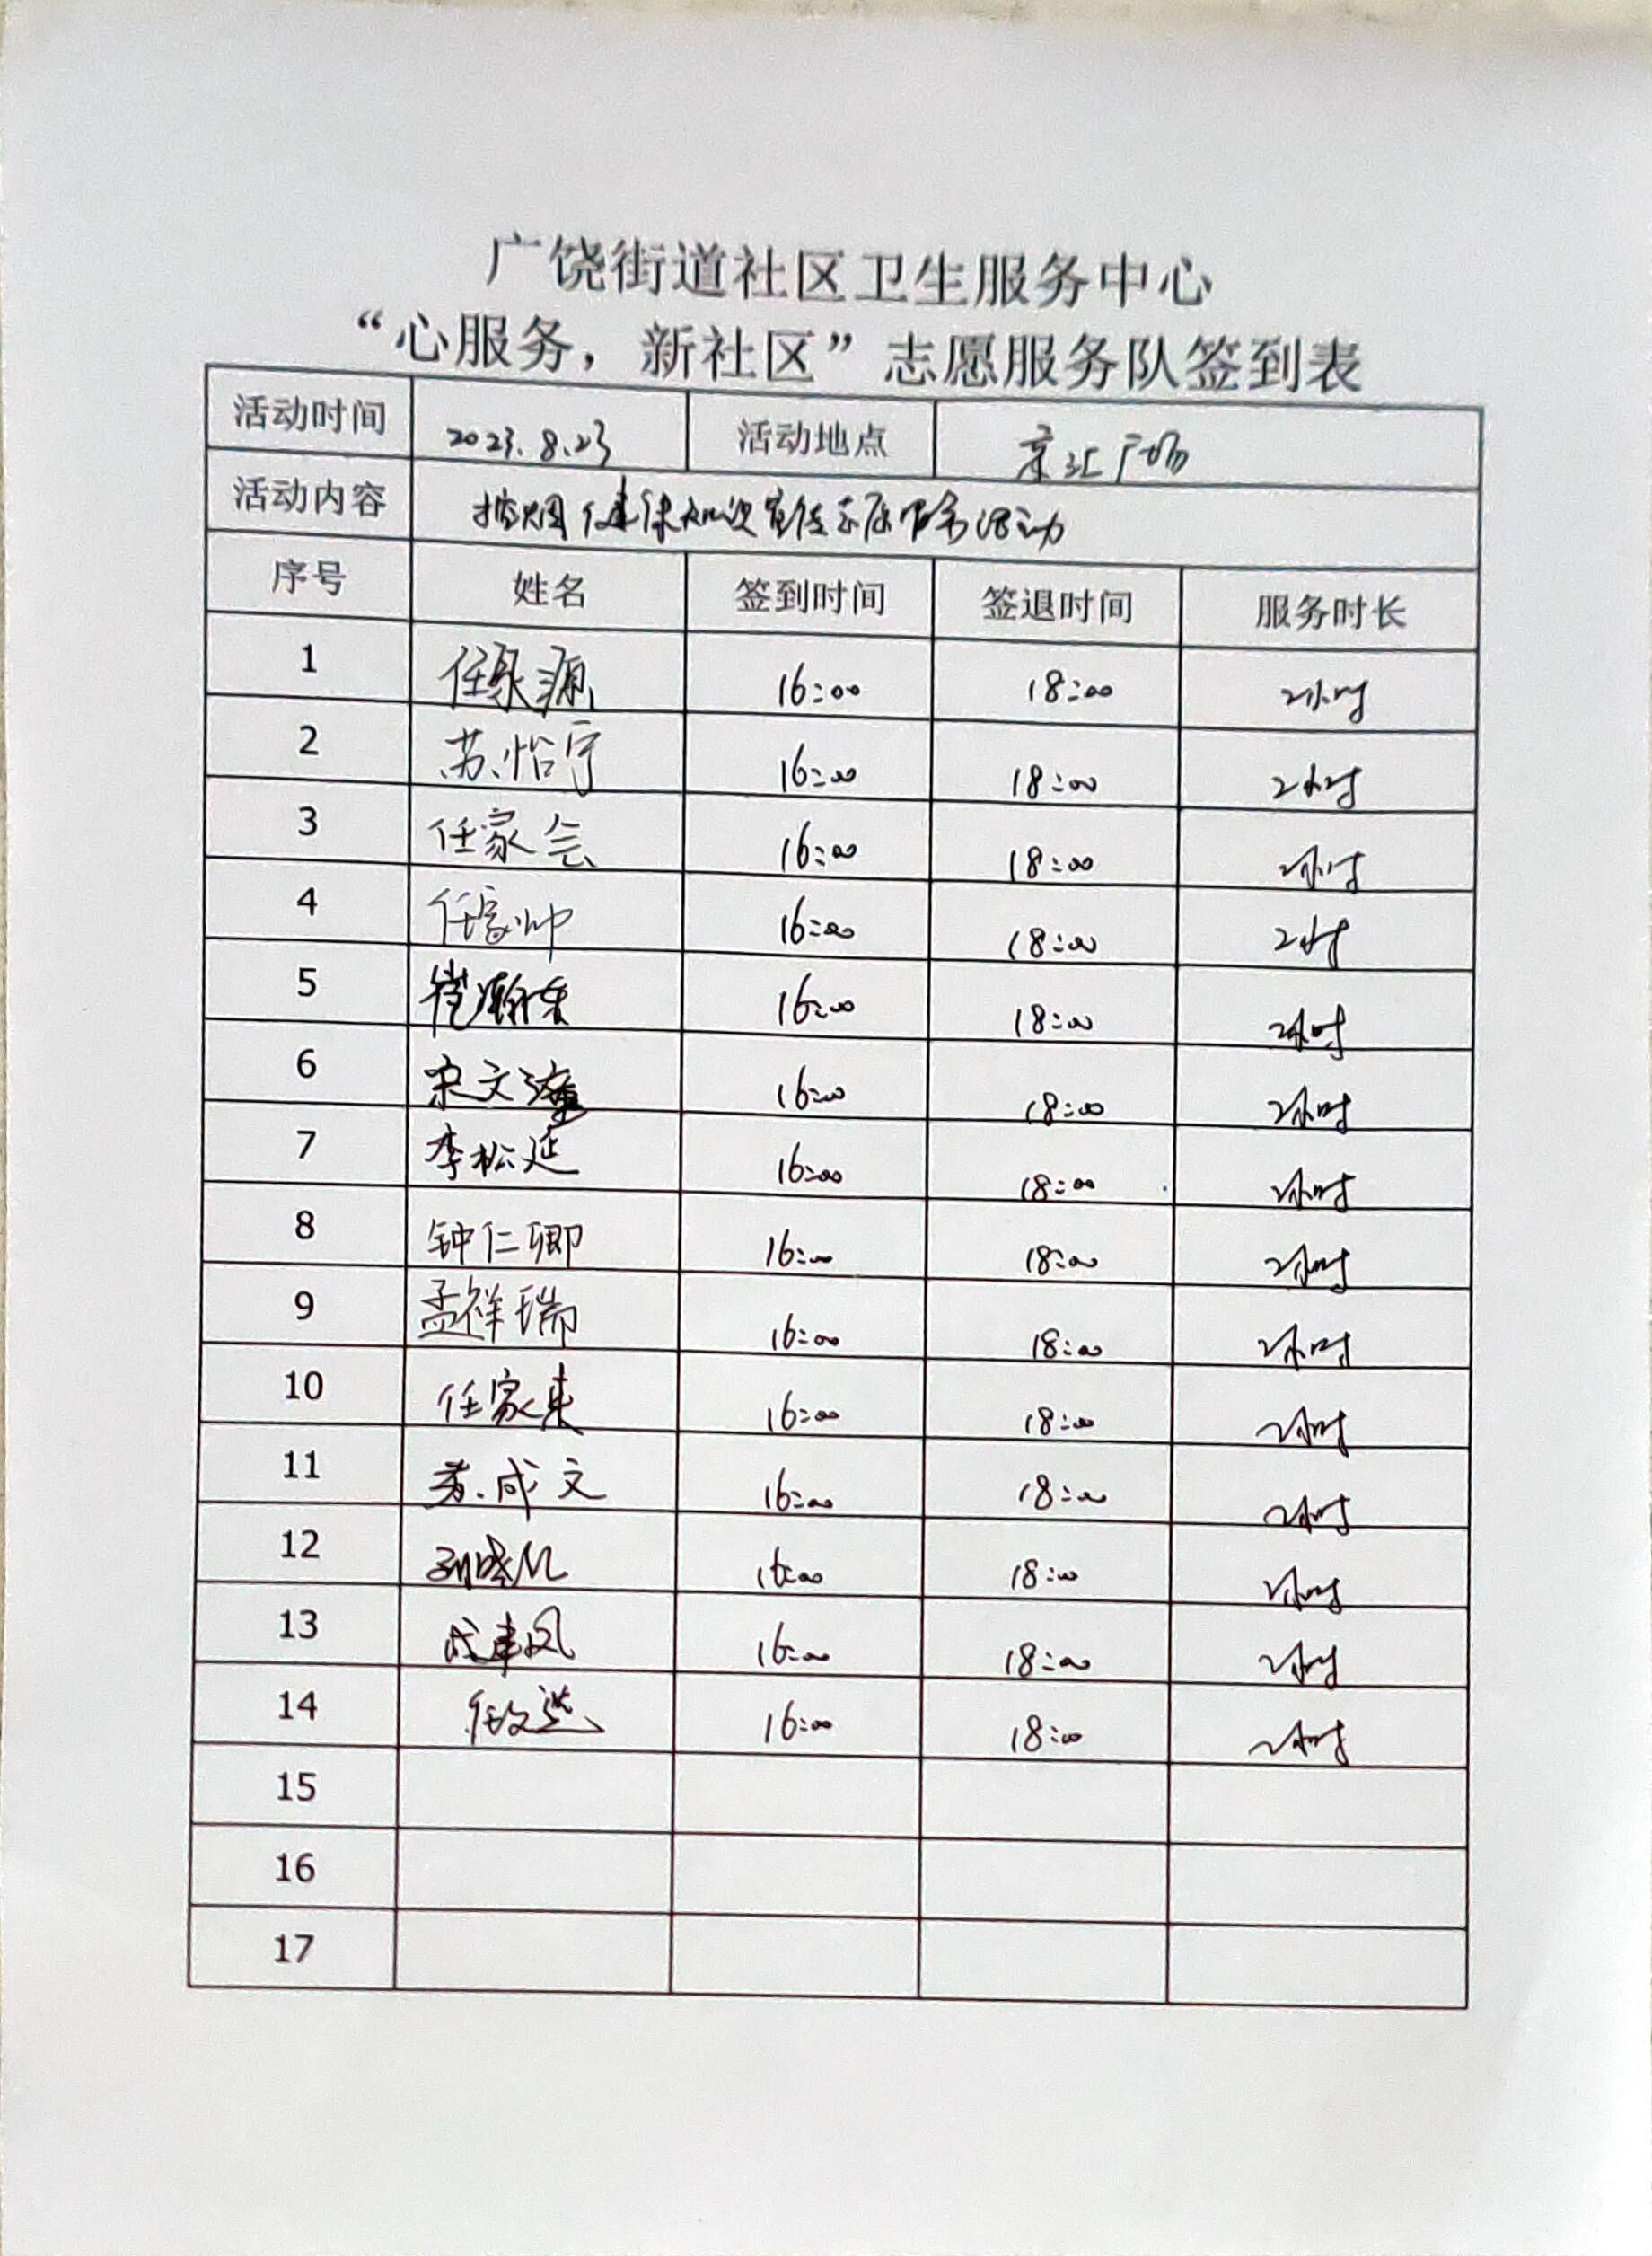 广饶街道社区卫生服务中心
“心服务，新社区”志愿服务队签到表
活动时间 2023.8.23 活动地点 京汇广场
活动内容 控烟健康知识宣传志愿服务活动
序号 姓名 签到时间 签退时间 服务时长
1 任 源 16:00 18:00 2小时
2 苏怡宁 16:00 18:00 2小时
3 任家会 16:00 18:00 2小时
4 任家帅 16:00 18:00 2小时
5 崔瀚东 16:00 18:00 2小时
6 宋文 16:00 18:00 2小时
7 李松延 16:00 18:00 2小时
8 钟仁卿 16:00 18:00 2小时
9 孟祥瑞 16:00 18:00 2小时
10 任家来 16:00 18:00 2小时
11 苏成文 16:00 18:00 2小时
12 16:00 18:00 2小时
13 成建凤 16:00 18:00 2小时
14 任文 16:00 18:00 2小时
15
16
17